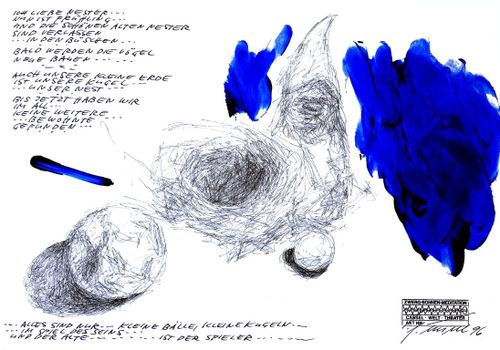 ICH LIEBE NESTER...
NUN IST FRÜHLING...
UND DIE SCHÖNEN ALTEN NESTER
SIND VERLASSEN
...IN DEN BÜSCHEN...
BALD WERDEN DIE VÖGEL
NEUE BAUEN...
AUCH UNSERE KLEINE ERDE
IST UNSERE KUGEL...
...UNSER NEST...
BIS JETZT HABEN WIR
IM ALL...
KEINE WEITERE
...BEWOHNTE...
GEFUNDEN...
ZWERG-BONSEN-MEDITATION
CANSEL-WELT-THEATER
ART NR:
96
...ALLES SIND NUR... KLEINE BÄLLE, KLEINE KUGELN...
...IM SPIEL DES SEINS...
UND DER ALTE ------- IST DER SPIELER...